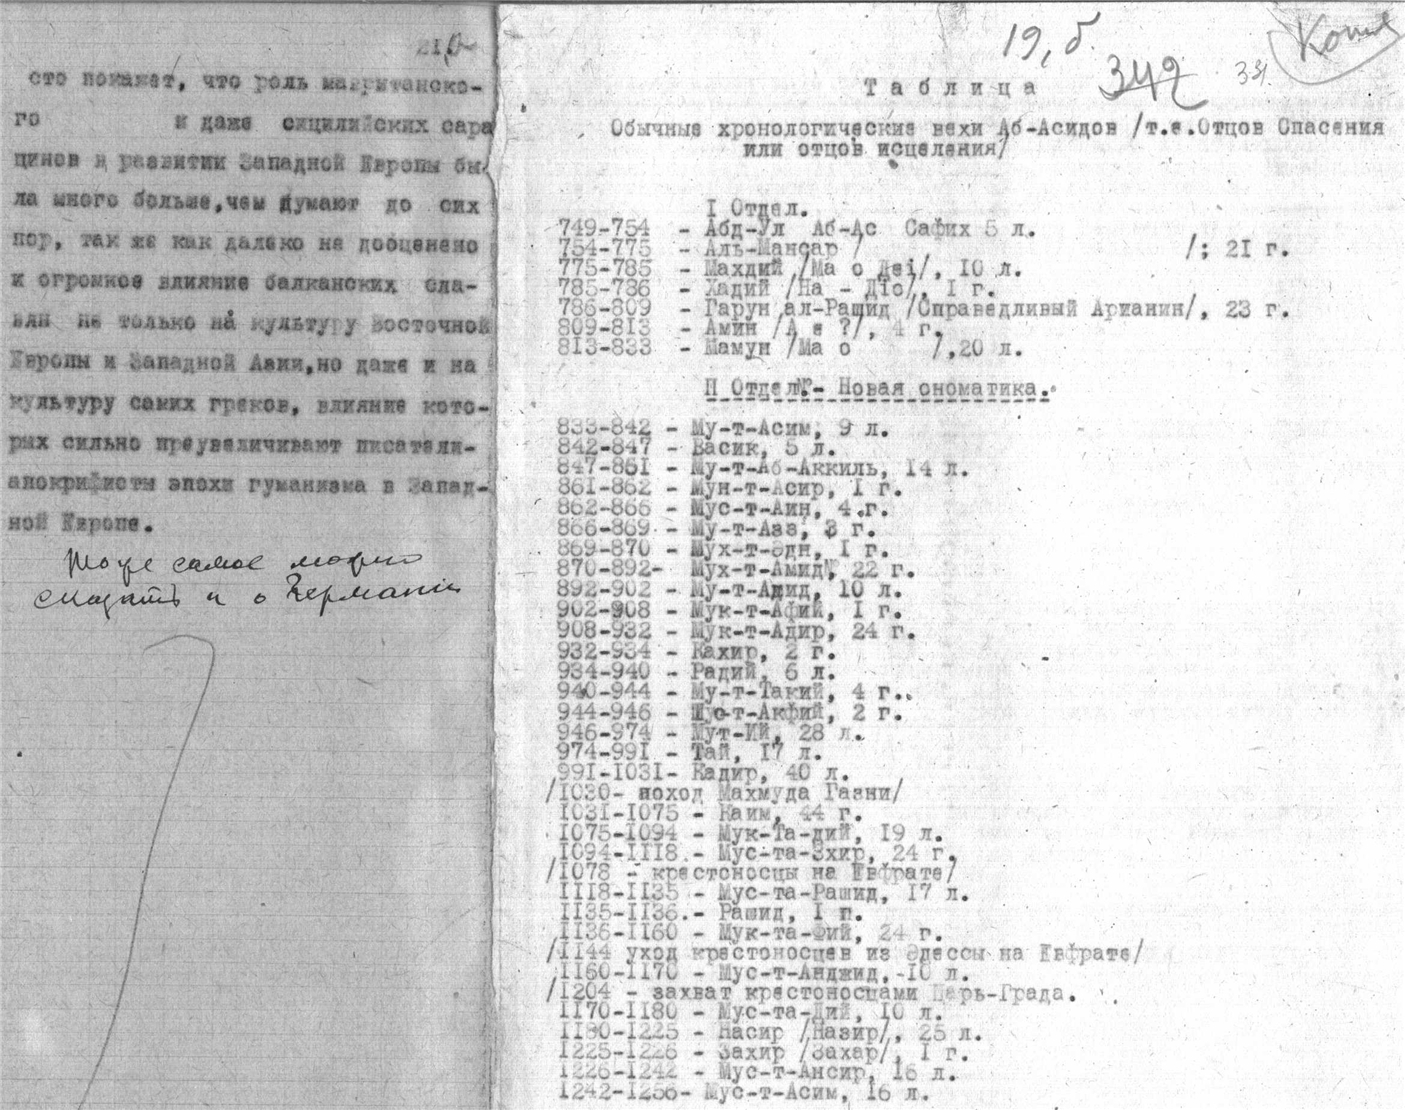 сто покажет, что роль мавританско-
го и даже сицилийских сара
цинов в развитии Западной Европы бы-
ла много больше,чем думают до сих
пор, так же как далеко не дооценено
и огромное влияние балканских сла-
вян не только на культуру Восточной
Европы и Западной Азии,но даже и на
культуру самих греков, влияние кото-
рых сильно преувеличивают писатели-
апокрифисты эпохи гуманизма в Запад-
ной Европе.
Тоже самое можно
сказать и о Германии
19, б.
Копия
342
331
Таблица
Обычные хронологические вехи Аб-Асидов /т.е.Отцов Спасения
или отцов исцеления/
I Отдел.
749-754 - Абд-Ул Аб-Ас Сафих 5 л.
754-775 - Аль-Мансар / /; 21 г.
775-785 - Махдий /Ма о Деі/, 10 л.
785-786 - Хадий /На - Діо/, I г.
786-809 - Гарун ал-Рашид /Справедливый Арианин/, 23 г.
809-813 - Амин /А е ?/, 4 г.
813-833 - Мамун /Ма о /,20 л.
П Отдел.- Новая ономатика.
833-842 - Му-т-Асим, 9 л.
842-847 - Васик, 5 л.
847-861 - Му-т-Аб-Аккиль, 14 л.
861-862 - Мун-т-Асир, I г.
862-866 - Мус-т-Аин, 4.г.
866-869 - Му-т-Азз, 3 г.
869-870 - Мух-т-Эдн, I г.
870-892- Мух-т-Амид, 22 г.
892-902 - Му-т-Адид, 10 л.
902-908 - Мук-т-Афий, I г.
908-932 - Мук-т-Адир, 24 г.
932-934 - Кахир, 2 г.
934-940 - Радий, 6 л.
940-944 - Му-т-Такий, 4 г..
944-946 - Мус-т-Акфий, 2 г.
946-974 - Мут-Ий, 28 л.
974-991 - Тай, 17 л.
991-1031- Кадир, 40 л.
/1030- поход Махмуда Газни/
1031-1075 - Каим, 44 г.
1075-1094 - Мук-Та-дий, 19 л.
1094-1118.- Мус-та-Эхир, 24 г.
/1078 - крестоносцы на Евфрате/
1118-1135 - Мус-та-Рашид, 17 л.
1135-1136.- Рашид, I г.
1136-1160 - Мук-та-Фий, 24 г.
/1144 уход крестоносцев из Эдессы на Евфрате/
1160-1170 - Мус-т-Анджид,-10 л.
/1204 - захват крестоносцами Царь-Града.
1170-1180 - Мус-та-Дий, 10 л.
1180-1225 - Насир /Назир/, 25 л.
1225-1226 - Захир /Захар/, I г.
1226-1242 - Мус-т-Ансир, 16 л.
1242-1256- Мус-т-Асим, 16 л.